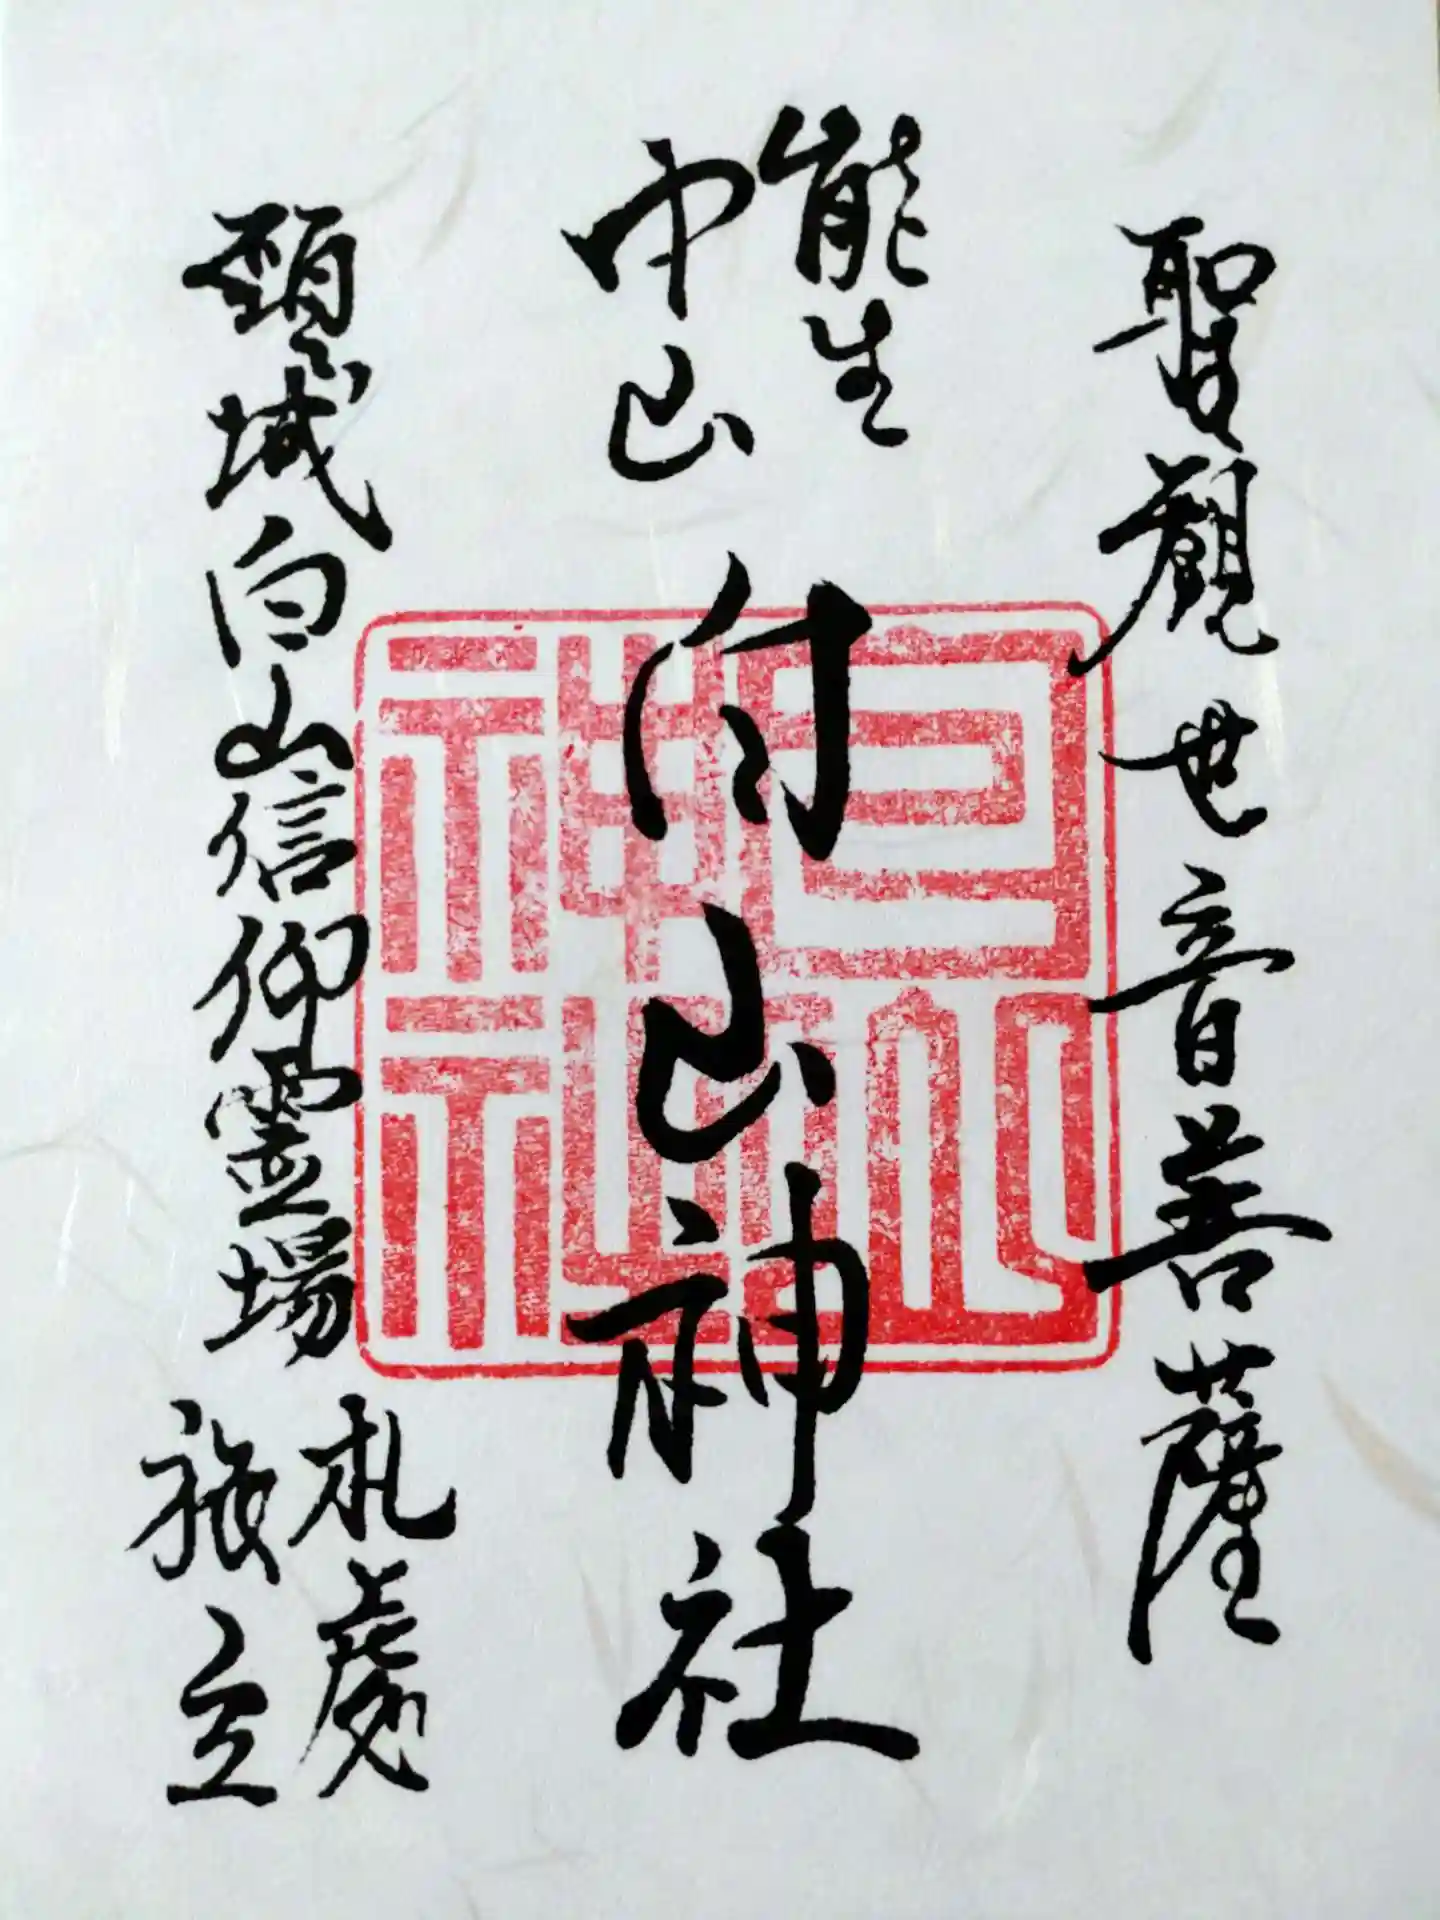 聖觀世音菩薩
能生
白山神社
頸城白山信仰霊場
札處
白山
神社